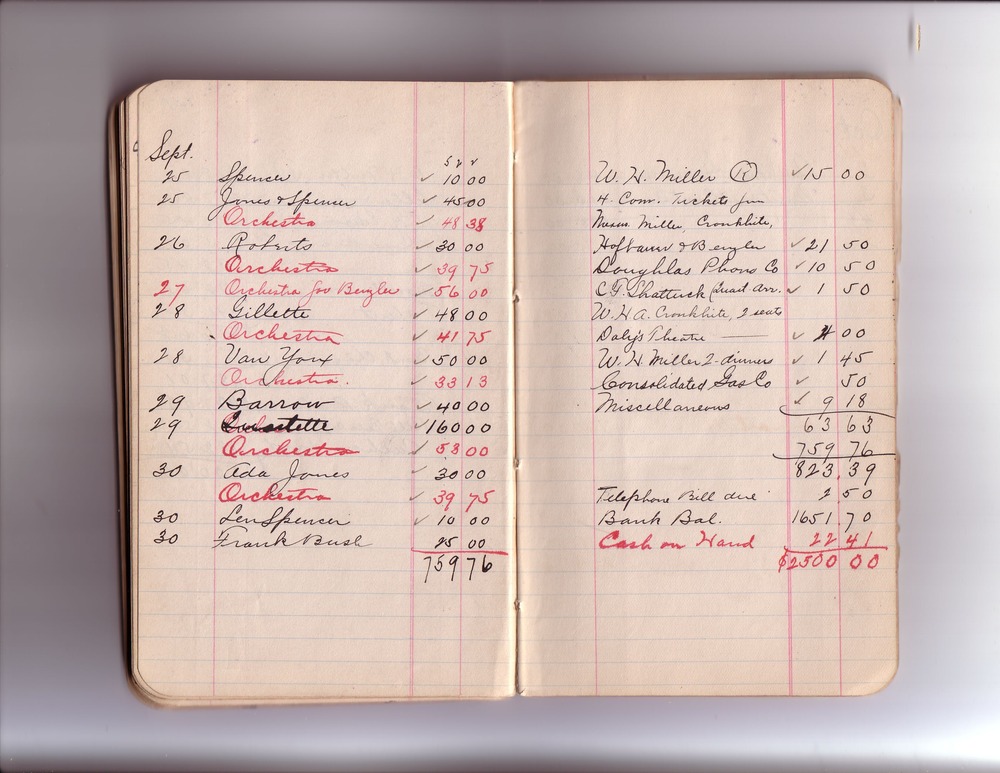 Sept.
25 Spencer ✓ 10 00
25 Jones & Spencer ✓ 45 00
Orchestra ✓ 48 38
26 Roberts ✓ 30 00
Orchestra ✓ 39 75
27 Orchestra for Bergler ✓ 56 00
28 Gillette ✓ 48 00
Orchestra ✓ 41 75
28 Van York ✓ 50 00
Orchestra ✓ 33 13
29 Barrow ✓ 40 00
29 ✓ 160 00
Orchestra ✓ 53 00
30 Ada Jones 30 00
Orchestra ✓ 39 75
30 Len Spencer ✓ 10 00
30 Frank Bush 25 00
759 76
W. H. Miller ✓ 15 00
4 Com. Tickets for
Messrs Miller, Cronkhite,
Hofbauer & Bergler ✓ 21 50
Doughlas Phono Co ✓ 10 50
C. F. Shattuck (Quart Arr. ✓ 1 50
W. H. A. Cronkhite, 2 seats
Daly's Theatre — ✓ 4 00
W. H. Miller 2-dinners ✓ 1 45
Consolidated Gas Co ✓ 50
Miscellaneous ✓ 9 18
63 63
759 76
823.39
Telephone Bill due 2 50
Bank Bal. 1651.70
Cash on Hand 22 41
$2500 00